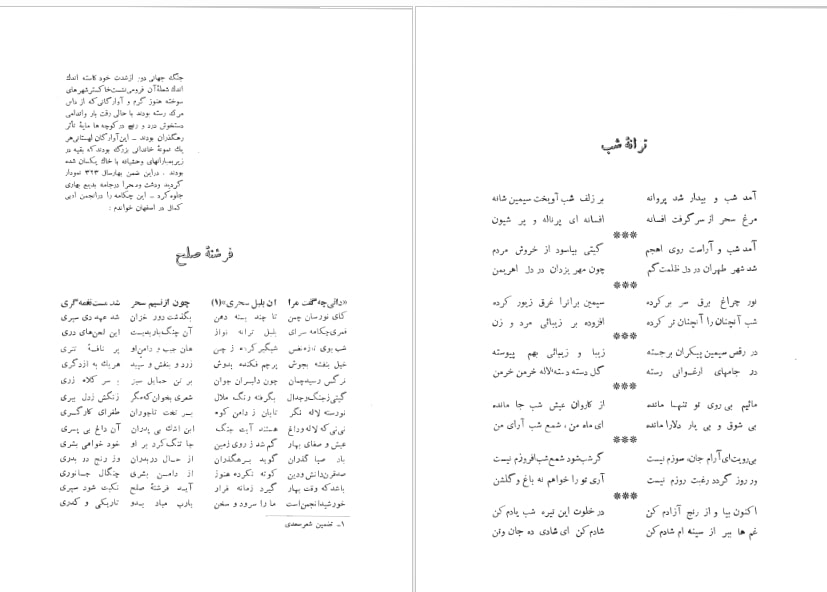 ترانهٔ شب
آمد شب و بیدار شد پروانه بر زلف شب آویخت سیمین شانه
مرغ سحر از سر گرفت افسانه افسانه ای پرناله و پر شیون
***
آمد شب و آراست روی انجم گیتی بیاسود از خروش مردم
شد شهر طهران در دل ظلمت گم چون مهر یزدان در دل اهریمن
***
نور چراغ برق سر بر کرده سیمین برانرا غرق زیور کرده
شب آنچنان را آنچنان تر کرده افزوده بر زیبائی مرد و زن
***
در رقص سیمین پیکران برجسته زیبا و زیبائی بهم پیوسته
در جامهای ارغوانی رسته گل دسته دسته لاله خرمن خرمن
***
مائیم بی روی تو تنها مانده از کاروان عیش شب جا مانده
بی شوق و بی یار دلارا مانده ای ماه من ، شمع شب آرای من
***
بی‌رویت‌ای‌آرام جان، سوزم نیست گر شب‌شود شمع شب‌افروزم نیست
ور روز گردد رغبت روزم نیست آری تو را خواهم نه باغ و گلشن
***
اکنون بیا و از رنج آزادم کن در خلوت این تیره شب یادم کن
غم ها ببر از سینه ام شادم کن شادم کن ای شادی ده جان وتن
جنگ جهانی دوم از شدت خود کاسته اندک
اندک شعلهٔ آن فرومی‌نشست خاکستر شهرهای
سوخته هنوز گرم و آوارگانی که از داس
مرگ رسته بودند با حالی رقت بار واندامی
دستخوش درد و رنج در کوچه ها مایهٔ تأثر
رهگذران بودند ـ این آوارگان لهستانی هر
یک نمونهٔ خاندانی بزرگ بودند که بقیه در
زیر بمبارانهای وحشیانه با خاک یکسان شده
بودند . در این ضمن بهار سال ۳۲۳ نمودار
گردید ودشت وصحرا درجامه بدیع بهاری
جلوه کرد ـ این چکامه را در انجمن ادبی
کمال در اصفهان خواندم :
فرشتهٔ صلح
«دانی چه گفت مرا آن بلبل سحری»(۱) چون از نسیم سحر شد مست نغمه گری
کای نورسان چمن تا چند بسته دهن بگذشت دور خزان شد عهد دی سپری
قمری چکامه سرای بلبل ترانه نواز آن چنگ باربدیست این لحن‌های دری
شب بوی تازه نفس شبگیر کرده ز چین هان جیب و دامن او پر نافهٔ تتری
خیل بنفشه بجوش پرچم فکنده بدوش زرد و بنفش و سپید هریک به از دگری
نرگس رسید چمان چون دلبران جوان بر تن حمایل سبز بر سر کلاه زری
گیتی زجنگ وجدال بگرفته رنگ ملال شعری بخوان که مگر زنگش زدل ببری
نورسته لاله نگر تابان ز دامن کوه بر تخت تاجوران طغرای کارگری
نی‌نی که لاله و داغ هستند آیت جنگ این اشک بی پدران آن داغ بی پسری
عیش و صفای بهار گم شد ز روی زمین جا تنگ کرد بر او خود خواهی بشری
باد صبا گذران گوید برهگذران از حال دربدران وز رنج در بدری
صدقرن دانش ودین کوته نکرده هنوز از دامن بشری چنگال جانوری
باشد که وقت بهار گیرد زمانه قرار آید فرشتهٔ صلح نکبت شود سپری
خورشید انجمن است ما را سرود و سخن یارب مباد بدو تاریکی و کدری
۱ـ تضمین شعر سعدی